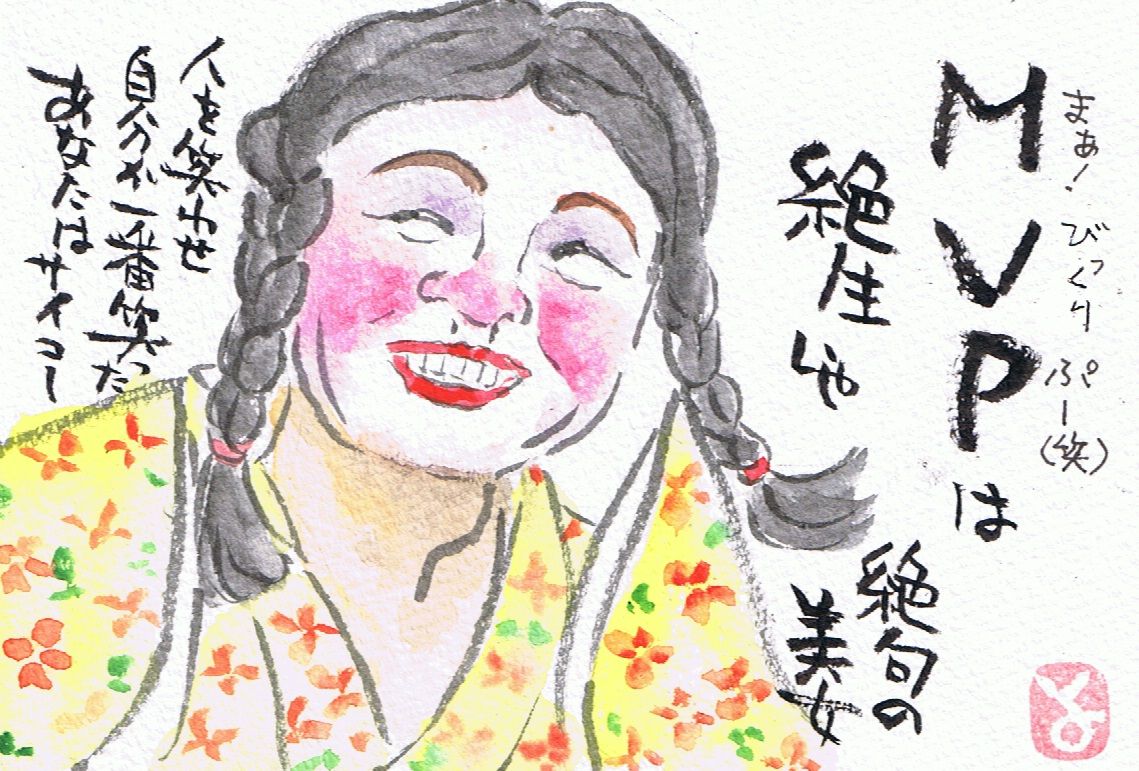 まぁ!びっくりぷー(笑)
MVPは
絶生しゃ
絶句の
美女
人を笑わせ
自分が一番笑った
あなたはサイコー